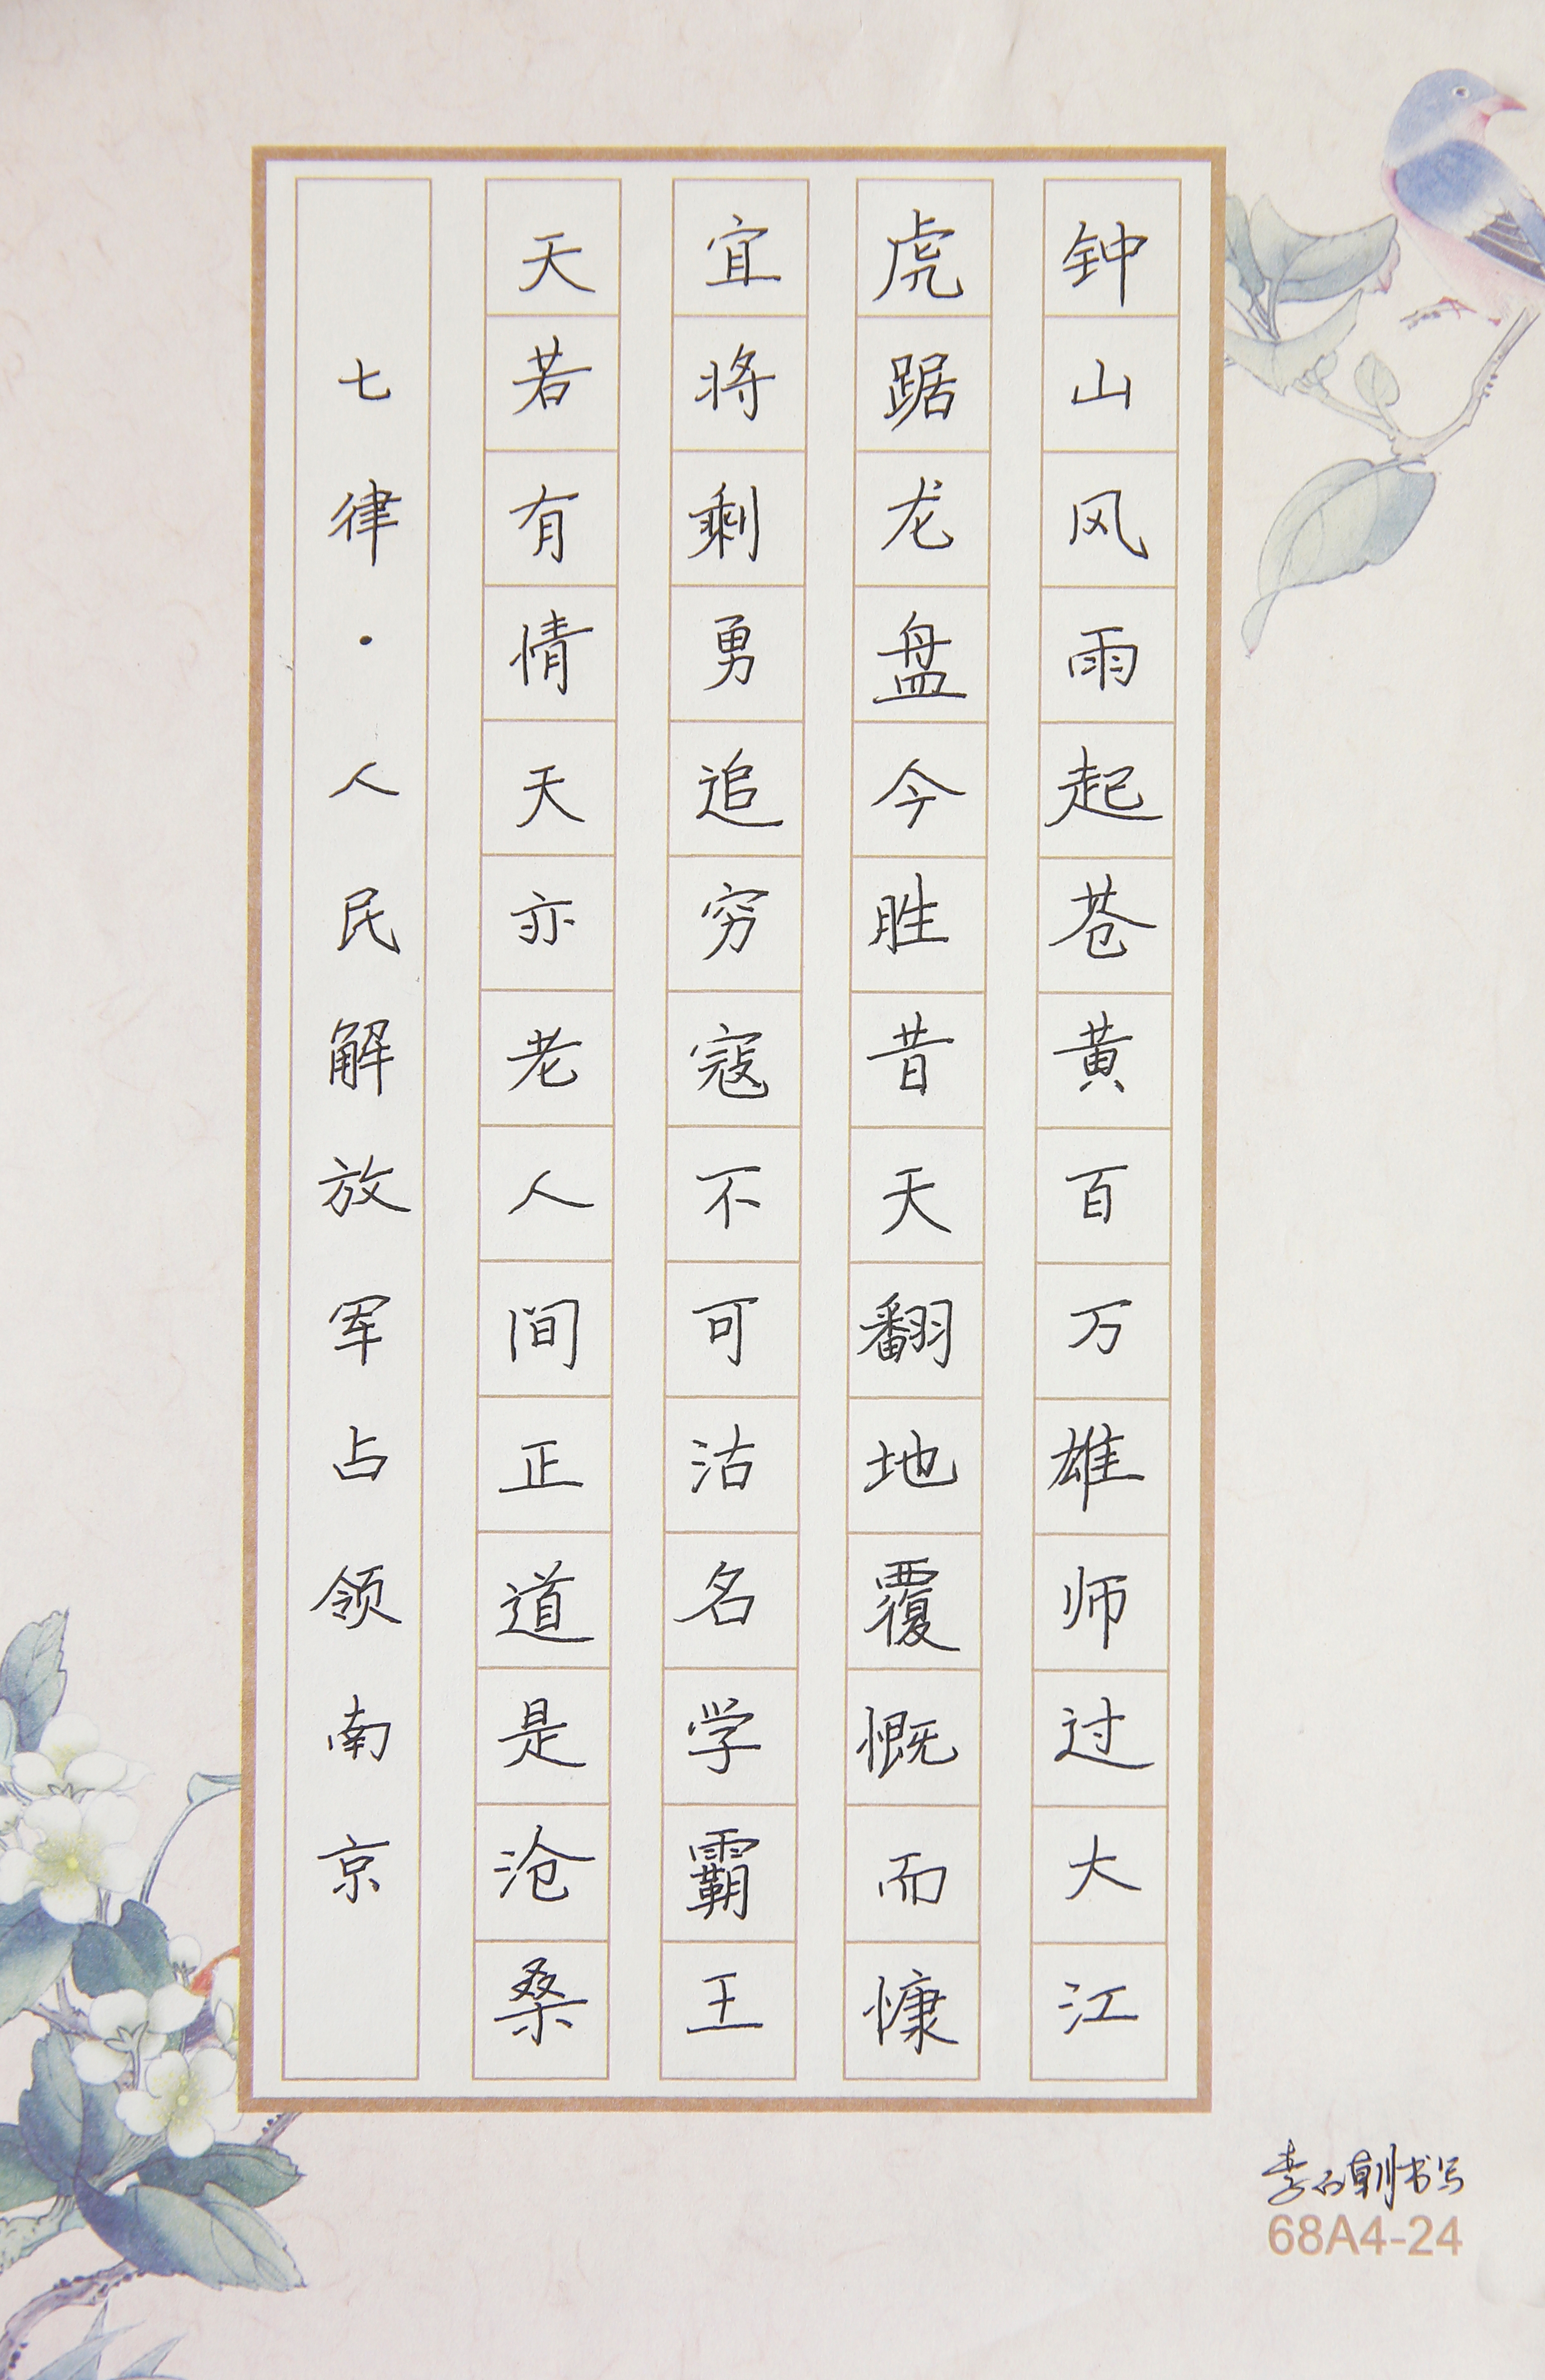 钟山风雨起苍黄百万雄师过大江
虎踞龙盘今胜昔天翻地覆慨而慷
宜将剩勇追穷寇不可沽名学霸王
天若有情天亦老人间正道是沧桑
七律·人民解放军占领南京
李石朝书写
68A4-24